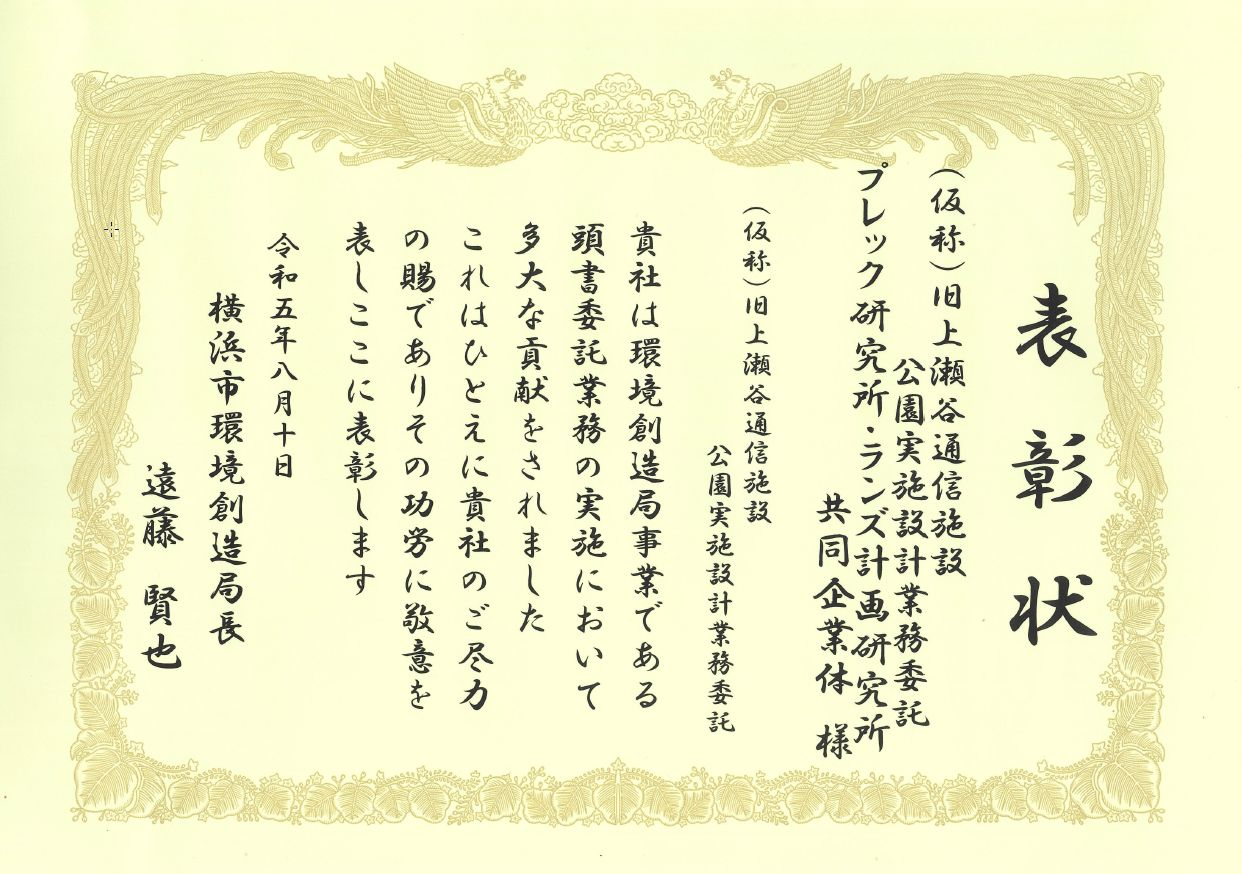 表彰状
(仮称)旧上瀬谷通信施設
公園実施設計業務委託
プレック研究所・ランズ計画研究所
共同企業体 様
(仮称)旧上瀬谷通信施設
公園実施設計業務委託
貴社は環境創造局事業である
頭書委託業務の実施において
多大な貢献をされました
これはひとえに貴社のご尽力
の賜でありその功労に敬意を
表しここに表彰します
令和五年八月十日
横浜市環境創造局長
遠藤 賢也